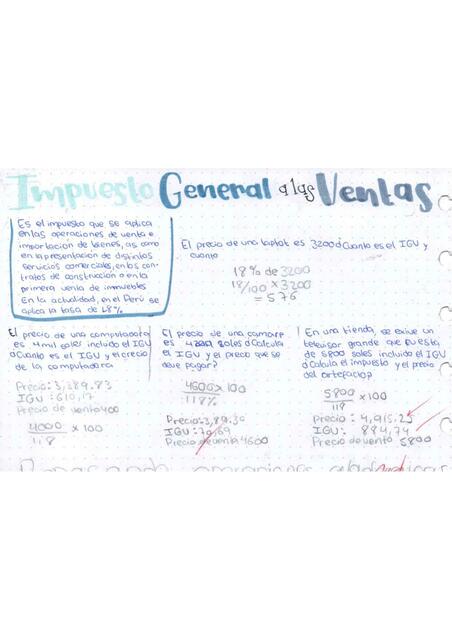 Impuesto General a las Ventas
Es el impuesto que se aplica
en las operaciones de venta e
importacion de bienes, as como
en la presentacion de distintos
servicios comerciales, en los con-
tratos de construcción o en la
primera venta de inmuebles
En la actualidad, en el Perú se
aplica la tasa de 18%
El precio de una laptot es 3200 ¿Cuanto es el IGV y
cuanto
18% de 3200
18/100 x 3200
= 576
El precio de una computadora
es 4mil soles incluido el IGV
¿Cuanto es el IGV y el precio
de la computadora
Precio: 3,389.83
IGV: 610,17
Precio de vento 400
4000 x 100
118
El precio de una camara
es soles ¿Calcula
el IGV y el preco que se
debe pagar?
4600 x 100
118%
Precio: 3,89.30
IGV: 70
Precio de venta 4600
En una tienda, se exive un
televisor grande que cuesta
de 5800 soles incluido el IGV
¿Calcula el impuesto y el precio
del artefacto?
5800 x 100
118
Precio: 4,915.25
IGV: 884,74
Precio de vento 5800